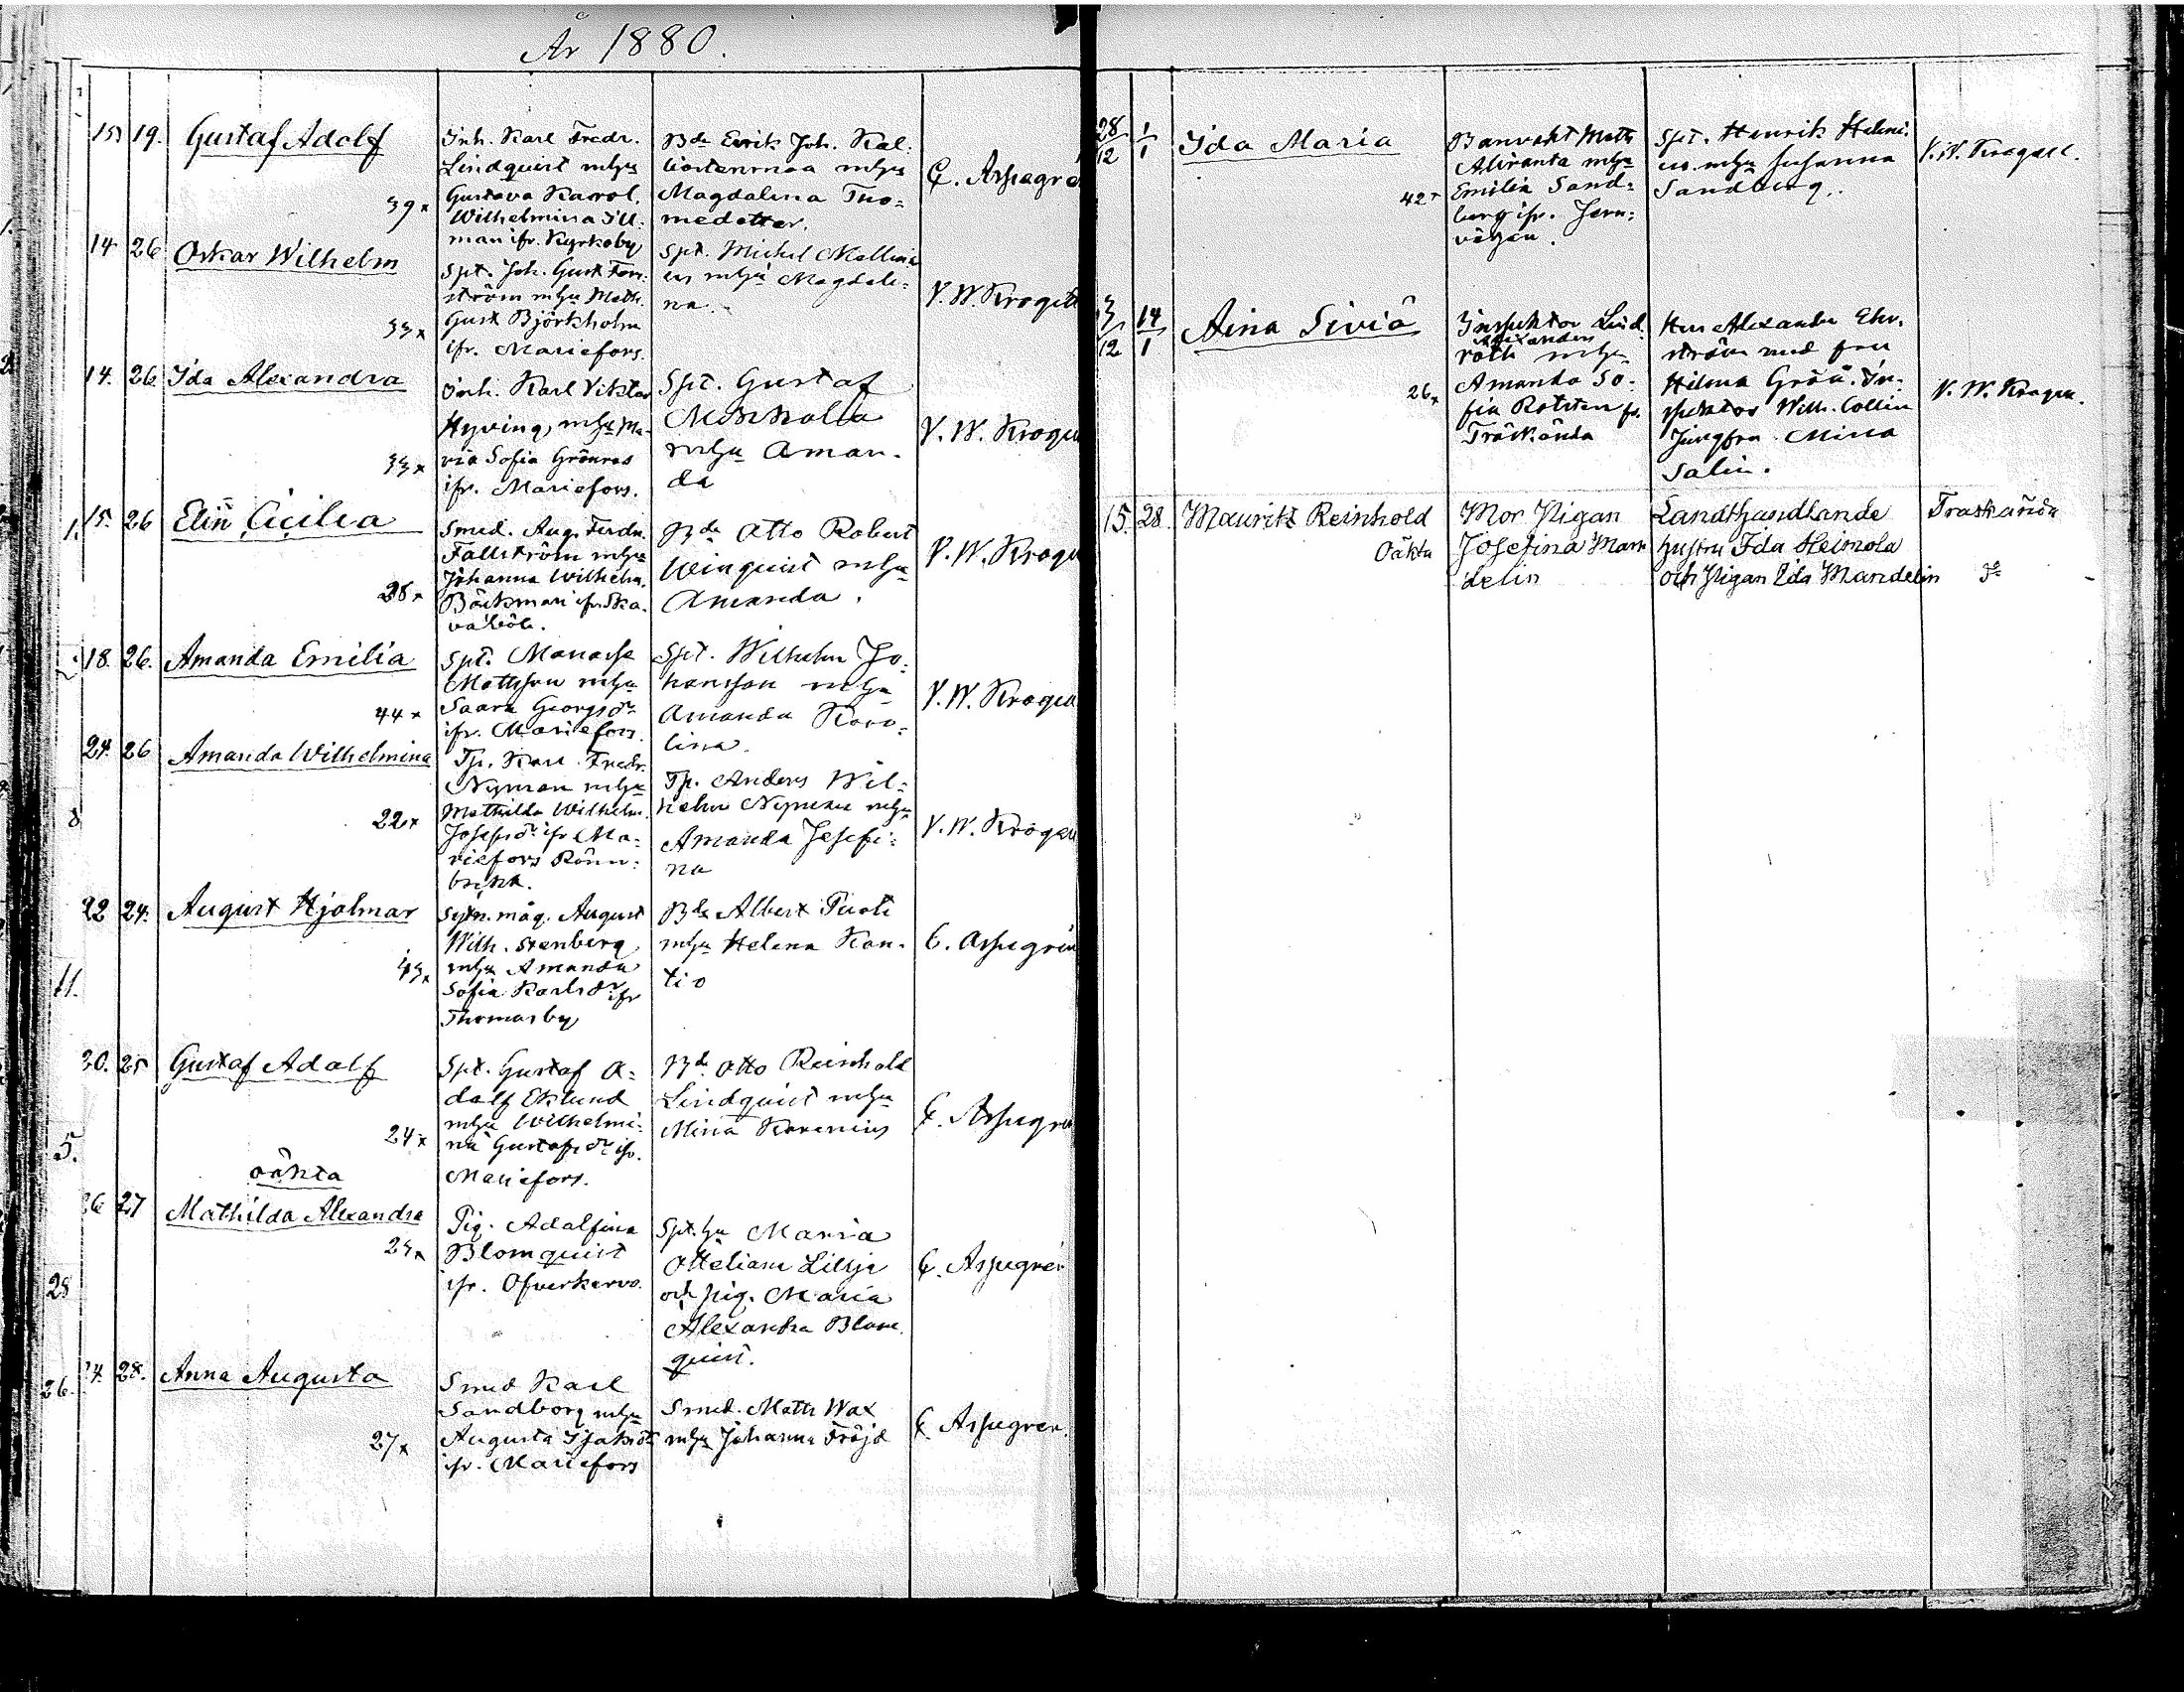 År 1880.
15 19. Gustaf Adolf
39x
Inh. Karl Fredr.
Lindquist m hu
Gustava Karol.
Wilhelmina Ill-
man ifr. Kyrkoby
Bde Eerik Joh. Kal-
liostenmaa m hu
Magdalena Tho-
medotter.
C. Aspegré
14 26 Oskar Wilhelm
33x
Spt. Joh. Gust Fors-
ström m hu Math.
Gust Björkholm
ifr. Mariefors.
Spt. Michel Mellini-
us m hu Magdale-
na.
V. W. Kroge
14. 26. Ida Alexandra
33x
Inh. Karl Viktor
Hyving, m hu Ma-
ria Sofia Grönros
ifr. Mariefors.
Spt. Gustaf
m hu Aman-
da
V. W. Kroge
15. 26 Elin Cicilia
28x
Smed. Aug. Ferdn.
Fallström m hu
Johanna Wilhelm.
Bäckman ifr. Ska-
vaböle.
Bde Otto Robert
Weinquist m hu
Amanda.
V. W. Kroge
18. 26. Amanda Emilia
44x
Spt. Manasse
Mattsson m hu
Saara Georgsdr
ifr. Mariefors.
Spt. Wilhelm Jo-
hansson m hu
Amanda Karo-
lina.
V. W. Kroge
24. 26 Amanda Wilhelmina
22x
Tp. Karl Fredr.
Nyman m hu
Mathilda Wilhelm.
Josefsdr ifr Ma-
riefors Rönn-
brink.
Tp. Anders Wil-
helm Nyman m hu
Amanda Josefi-
na
V. W. Kroge
22 24. August Hjalmar
43x
Sytn. måg. August
Wilh. Stenberg
m hu Amanda
Sofia Karlsdr ifr
Thomasby
Bde Albert Tuoti
m hu Helena Kan-
tio
C. Aspegrén
20. 25 Gustaf Adolf
24x
Spt. Gustaf A-
dolf Eklund
m hu Wilhelmi-
na Gustafsdr ifr.
Mariefors.
Bde Otto Reinhold
Lindquist m hu
Mina Karenius
C. Aspegre
oäkta
26 27 Mathilda Alexandra
23x
Pig. Adolfina
Blomquist
ifr. Ofverkervo.
Spt. hu Maria
Otteliana Lillja
och pig. Maria
Alexandra Blom-
quist.
C. Aspegrén
24. 28. Anna Augusta
27x
Smed Karl
Sandborg m hu
Augusta Isaksdr
ifr. Mariefors
Smed. Matts Wax
m hu Johanna Fröjd
C. Aspegren.
28/12 1/1 Ida Maria
42x
Banvakt Matts
Aliranta m hu
Emilia Sand-
berg ifr. Jern-
vägen.
Spt. Henrik Heleni-
us m hu Susanna
Sandberg.
V. W. Krogell.
3/12 14/1 Aina Siviä
26x
Inspektor Lind-
Alexander
roth m hu
Amanda So-
fia Rotsten fr.
Träskända
Herr Alexander Ehr-
ström med fru
Hilma Grön. In-
spektor Wilh. Collin
Jungfru Mina
Salin.
V. W. Kroge
15. 28. Maurits Reinhold
Oäkta
Mor Pigan
Josefina Man
delin
Landthandlande
hustru Ida Heimola
och Pigan Ida Mandelin
Traskända